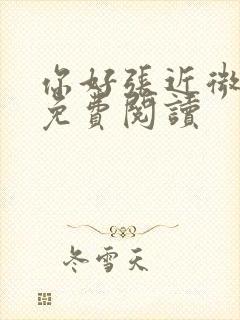 你好張近微
免費閱讀
冬雪天